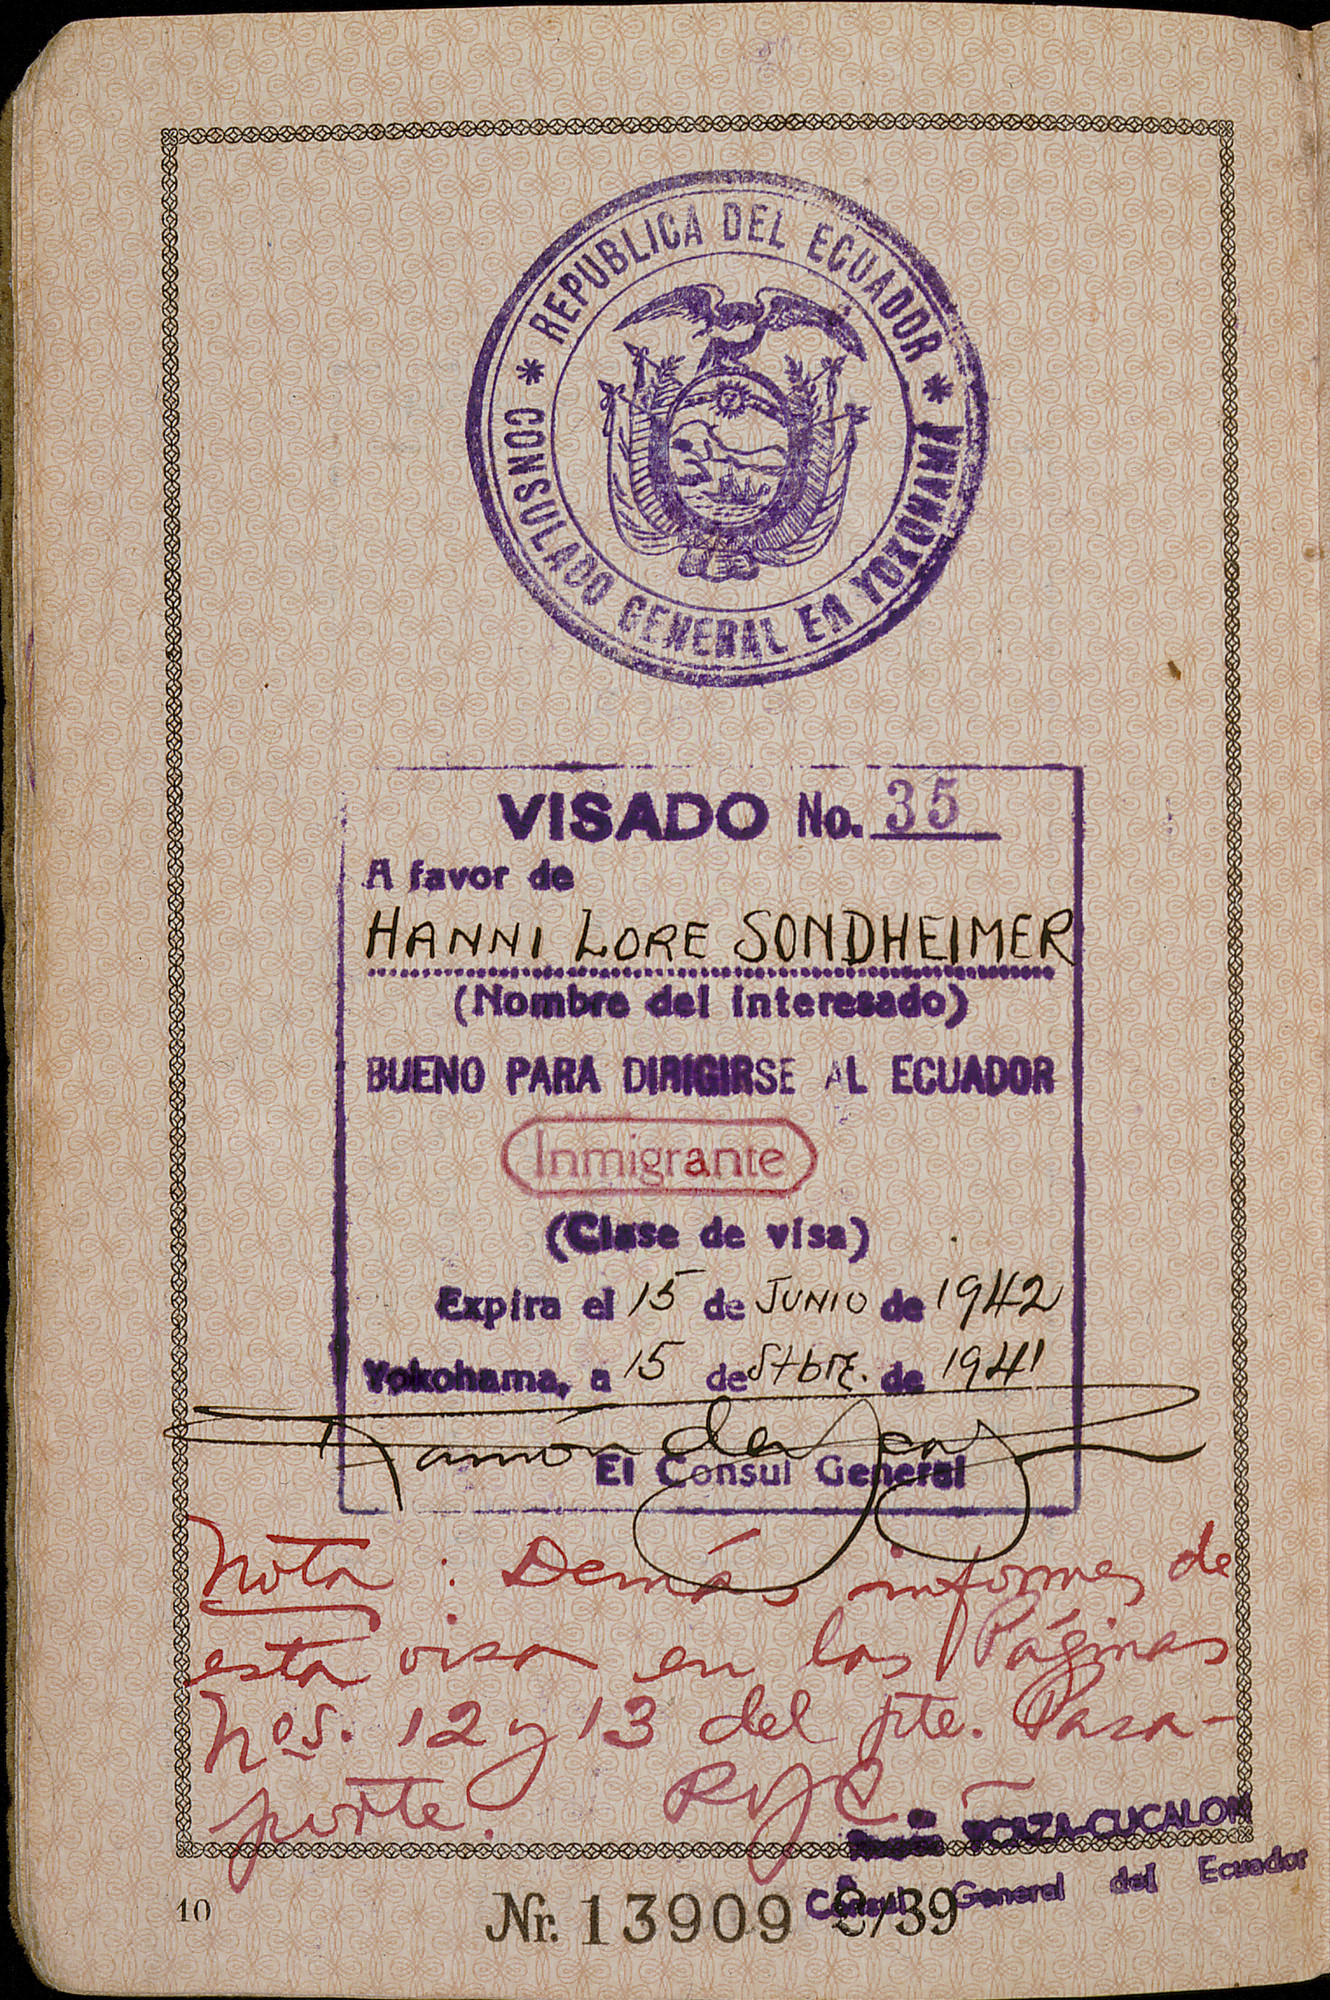 * REPUBLICA DEL ECUADOR *
CONSULADO GENERAL EN YOKOHAMA
VISADO No. 35
A favor de
HANNI LORE SONDHEIMER
(Nombre del interesado)
BUENO PARA DIRIGIRSE AL ECUADOR
Inmigrante
(Clase de visa)
Expira el 15 de JUNIO de 1942
Yokohama, a 15 de Stbre. de 1941
Ramón de
El Consul General
Nota: Demás informes de
esta visa en las Páginas
Nos. 12 y 13 del pte. Pasa-
porte. RYC
YCAZA-CUCALON
Consul General del Ecuador
10
Nr. 13909 2/39